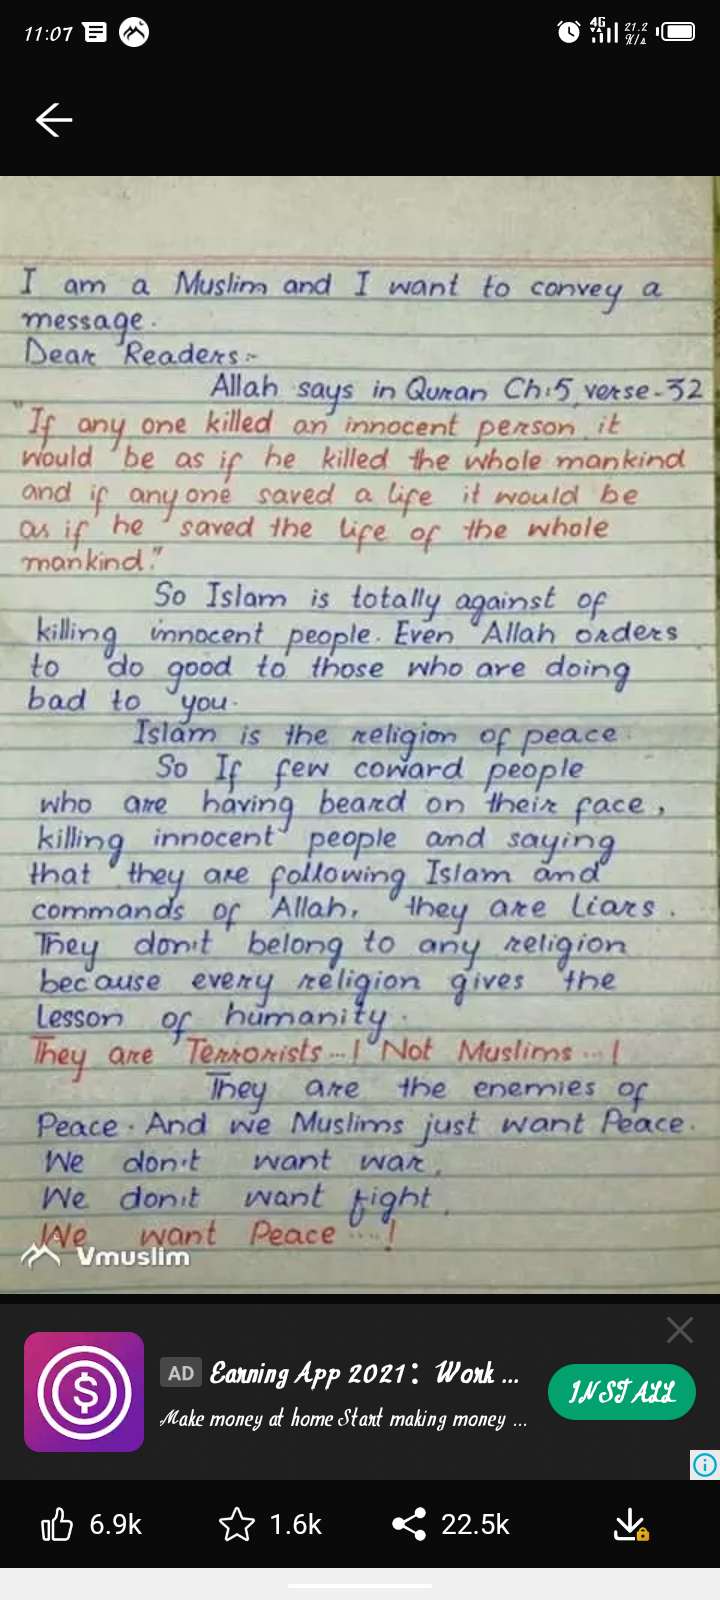 11:07
4G
21.2
K/s
I am a Muslim and I want to convey a
message.
Dear Readers:-
Allah says in Quran Ch:5, verse-32
"If any one killed an innocent person, it
would be as if he killed the whole mankind
and if any one saved a life it would be
as if he saved the life of the whole
mankind."
So Islam is totally against of
killing innocent people. Even Allah orders
to do good to those who are doing
bad to you.
Islam is the religion of peace.
So If few coward people
who are having beard on their face,
killing innocent people and saying
that they are following Islam and
commands of Allah, they are Liars.
They don't belong to any religion
because every religion gives the
Lesson of humanity.
They are Terrorists...! Not Muslims...!
They are the enemies of
Peace. And we Muslims just want Peace.
We don't want war,
We don't want fight,
We want Peace....!
Vmuslim
AD Earning App 2021: Work ...
Make money at home Start making money ...
INSTALL
6.9k 1.6k 22.5k